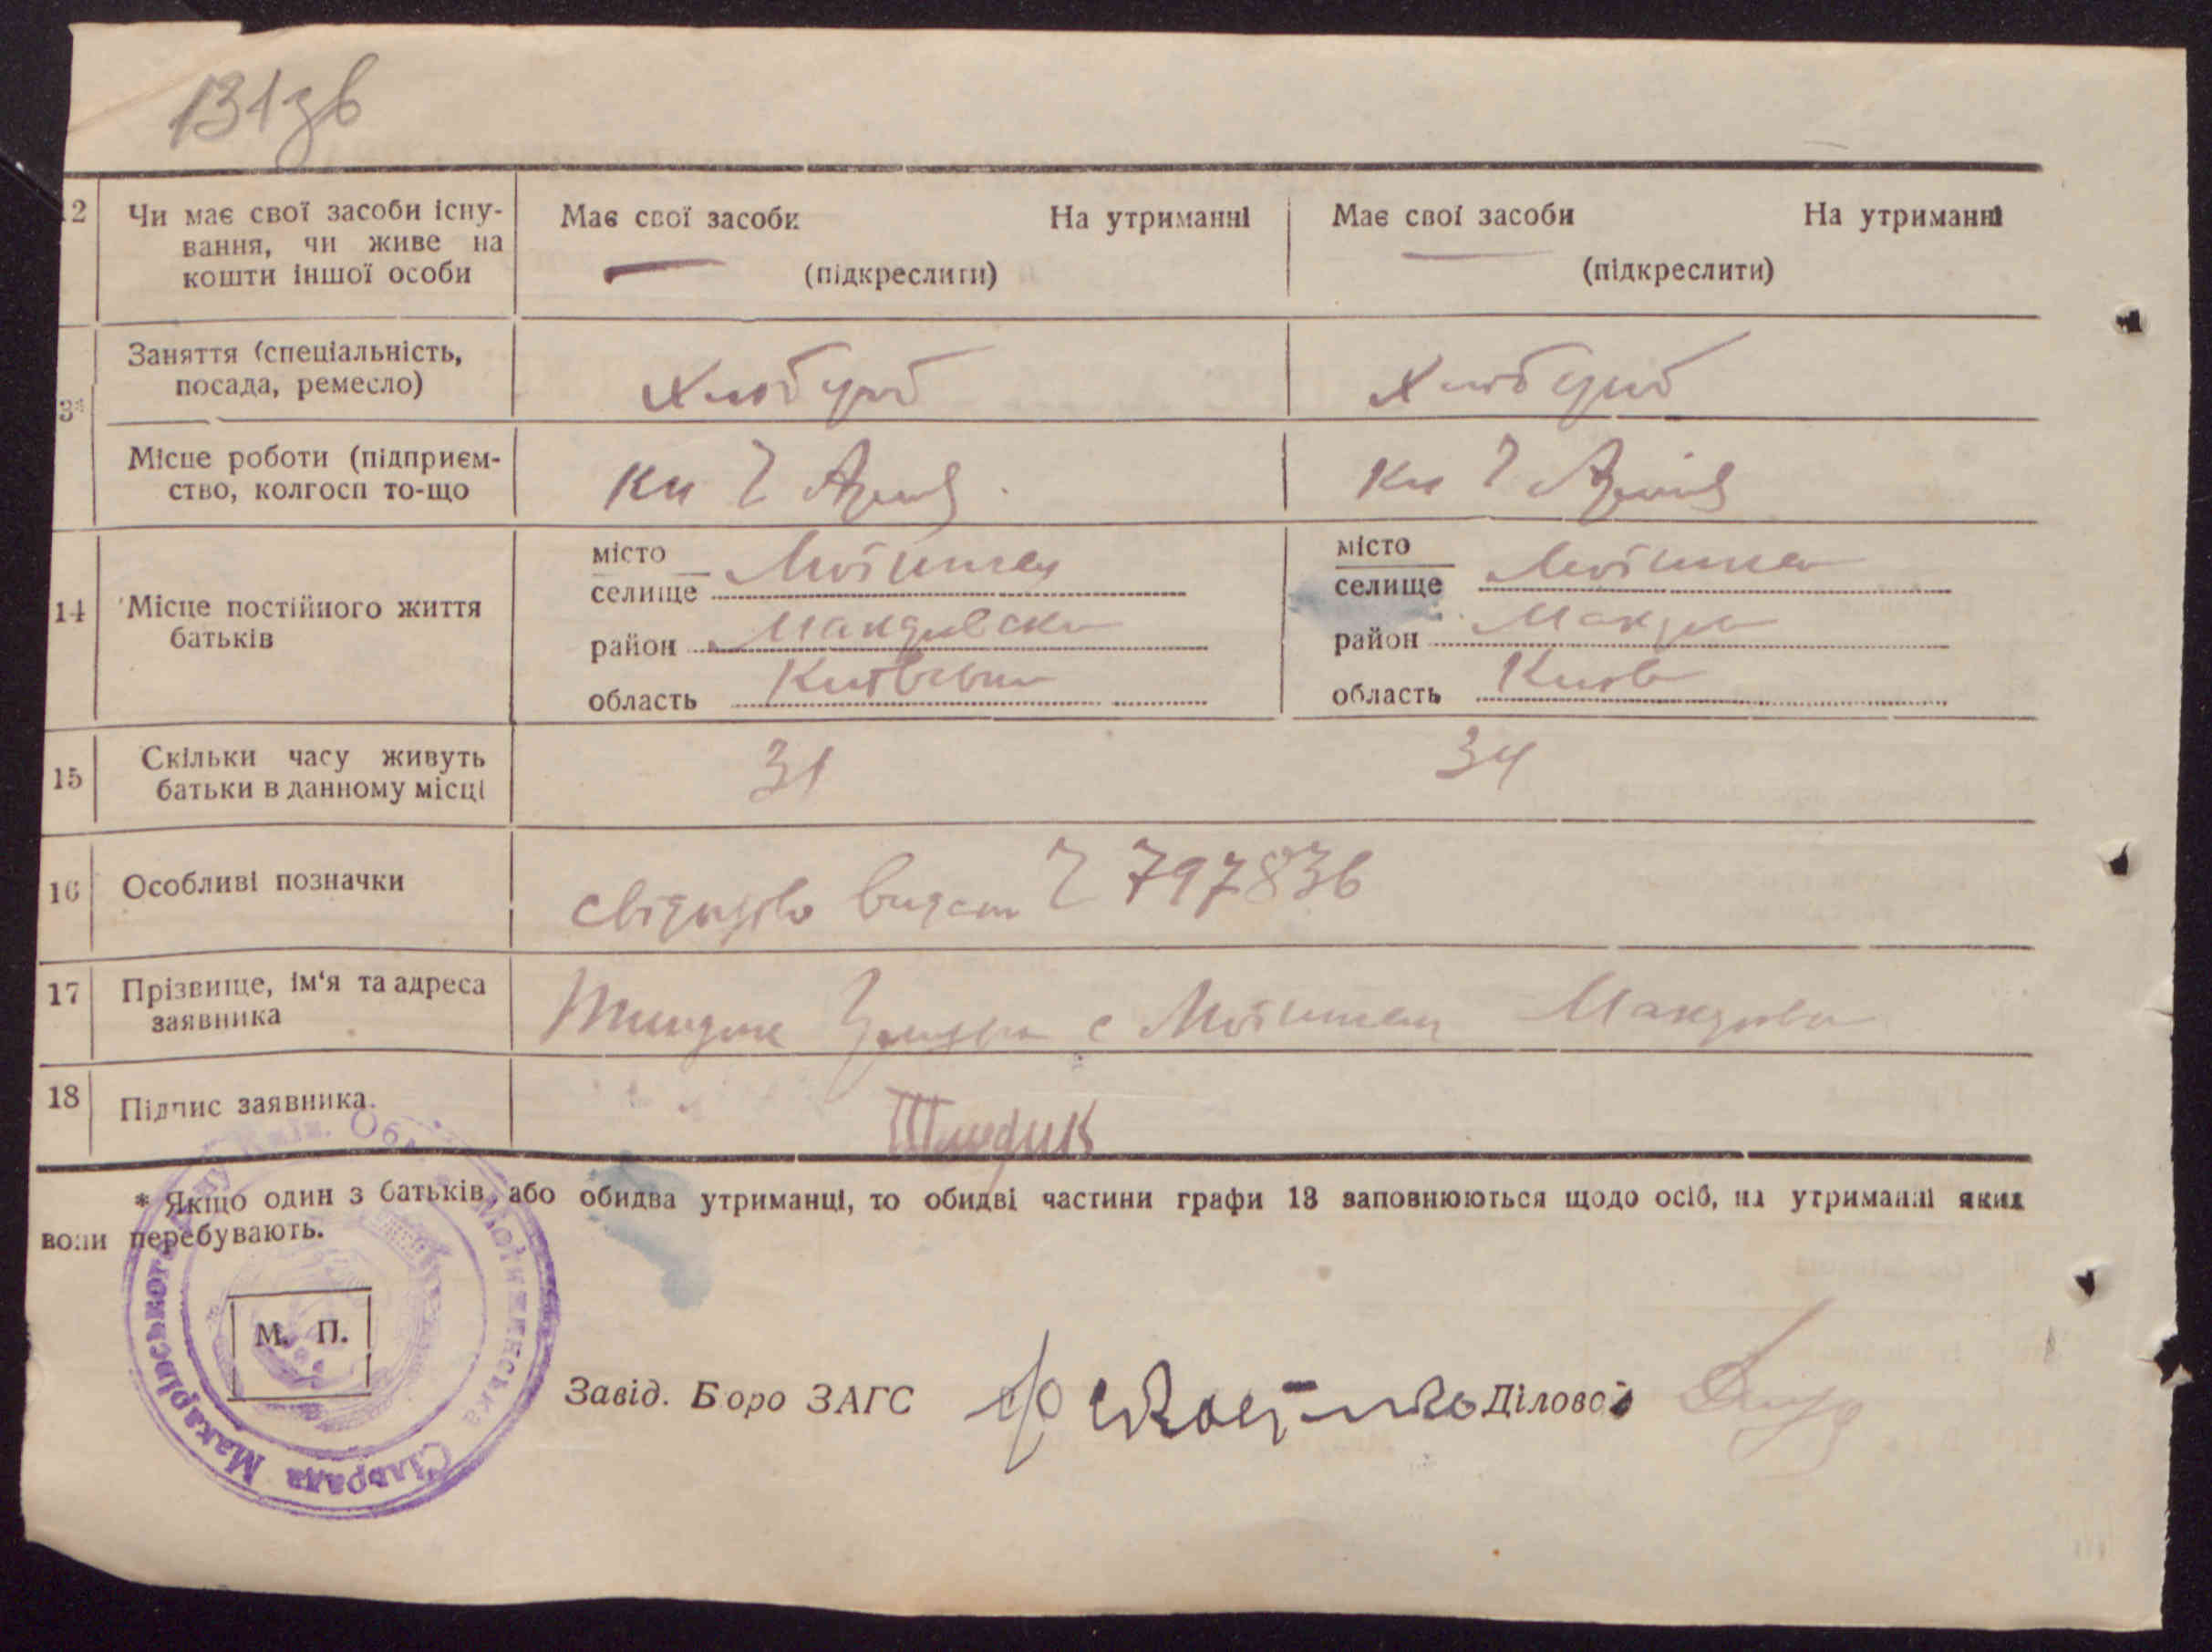 131зв
12 Чи має свої засоби існу-
вання, чи живе на
кошти іншої особи
Має свої засоби На утриманні
(підкреслити)
Має свої засоби На утриманні
(підкреслити)
13* Заняття (спеціальність,
посада, ремесло)
Хлібороб
Хлібороб
Місце роботи (підприєм-
ство, колгосп то-що
14 Місце постійного життя
батьків
місто
селище Мотижин
район Макарівськ
область Київськ
місто
селище Мотижин
район Макар
область Київ
15 Скільки часу живуть
батьки в данному місці
31
34
16 Особливі позначки
свідоцтво видано 797836
17 Прізвище, ім'я та адреса
заявника
с Мотижин Макарів
18 Підпис заявника
* Якщо один з батьків, або обидва утриманці, то обидві частини графи 13 заповнюються щодо осіб, на утриманні яких
вони перебувають.
М. П.
Мотижинська Сільрада Макарівського
Завід. Бюро ЗАГС
Діловод